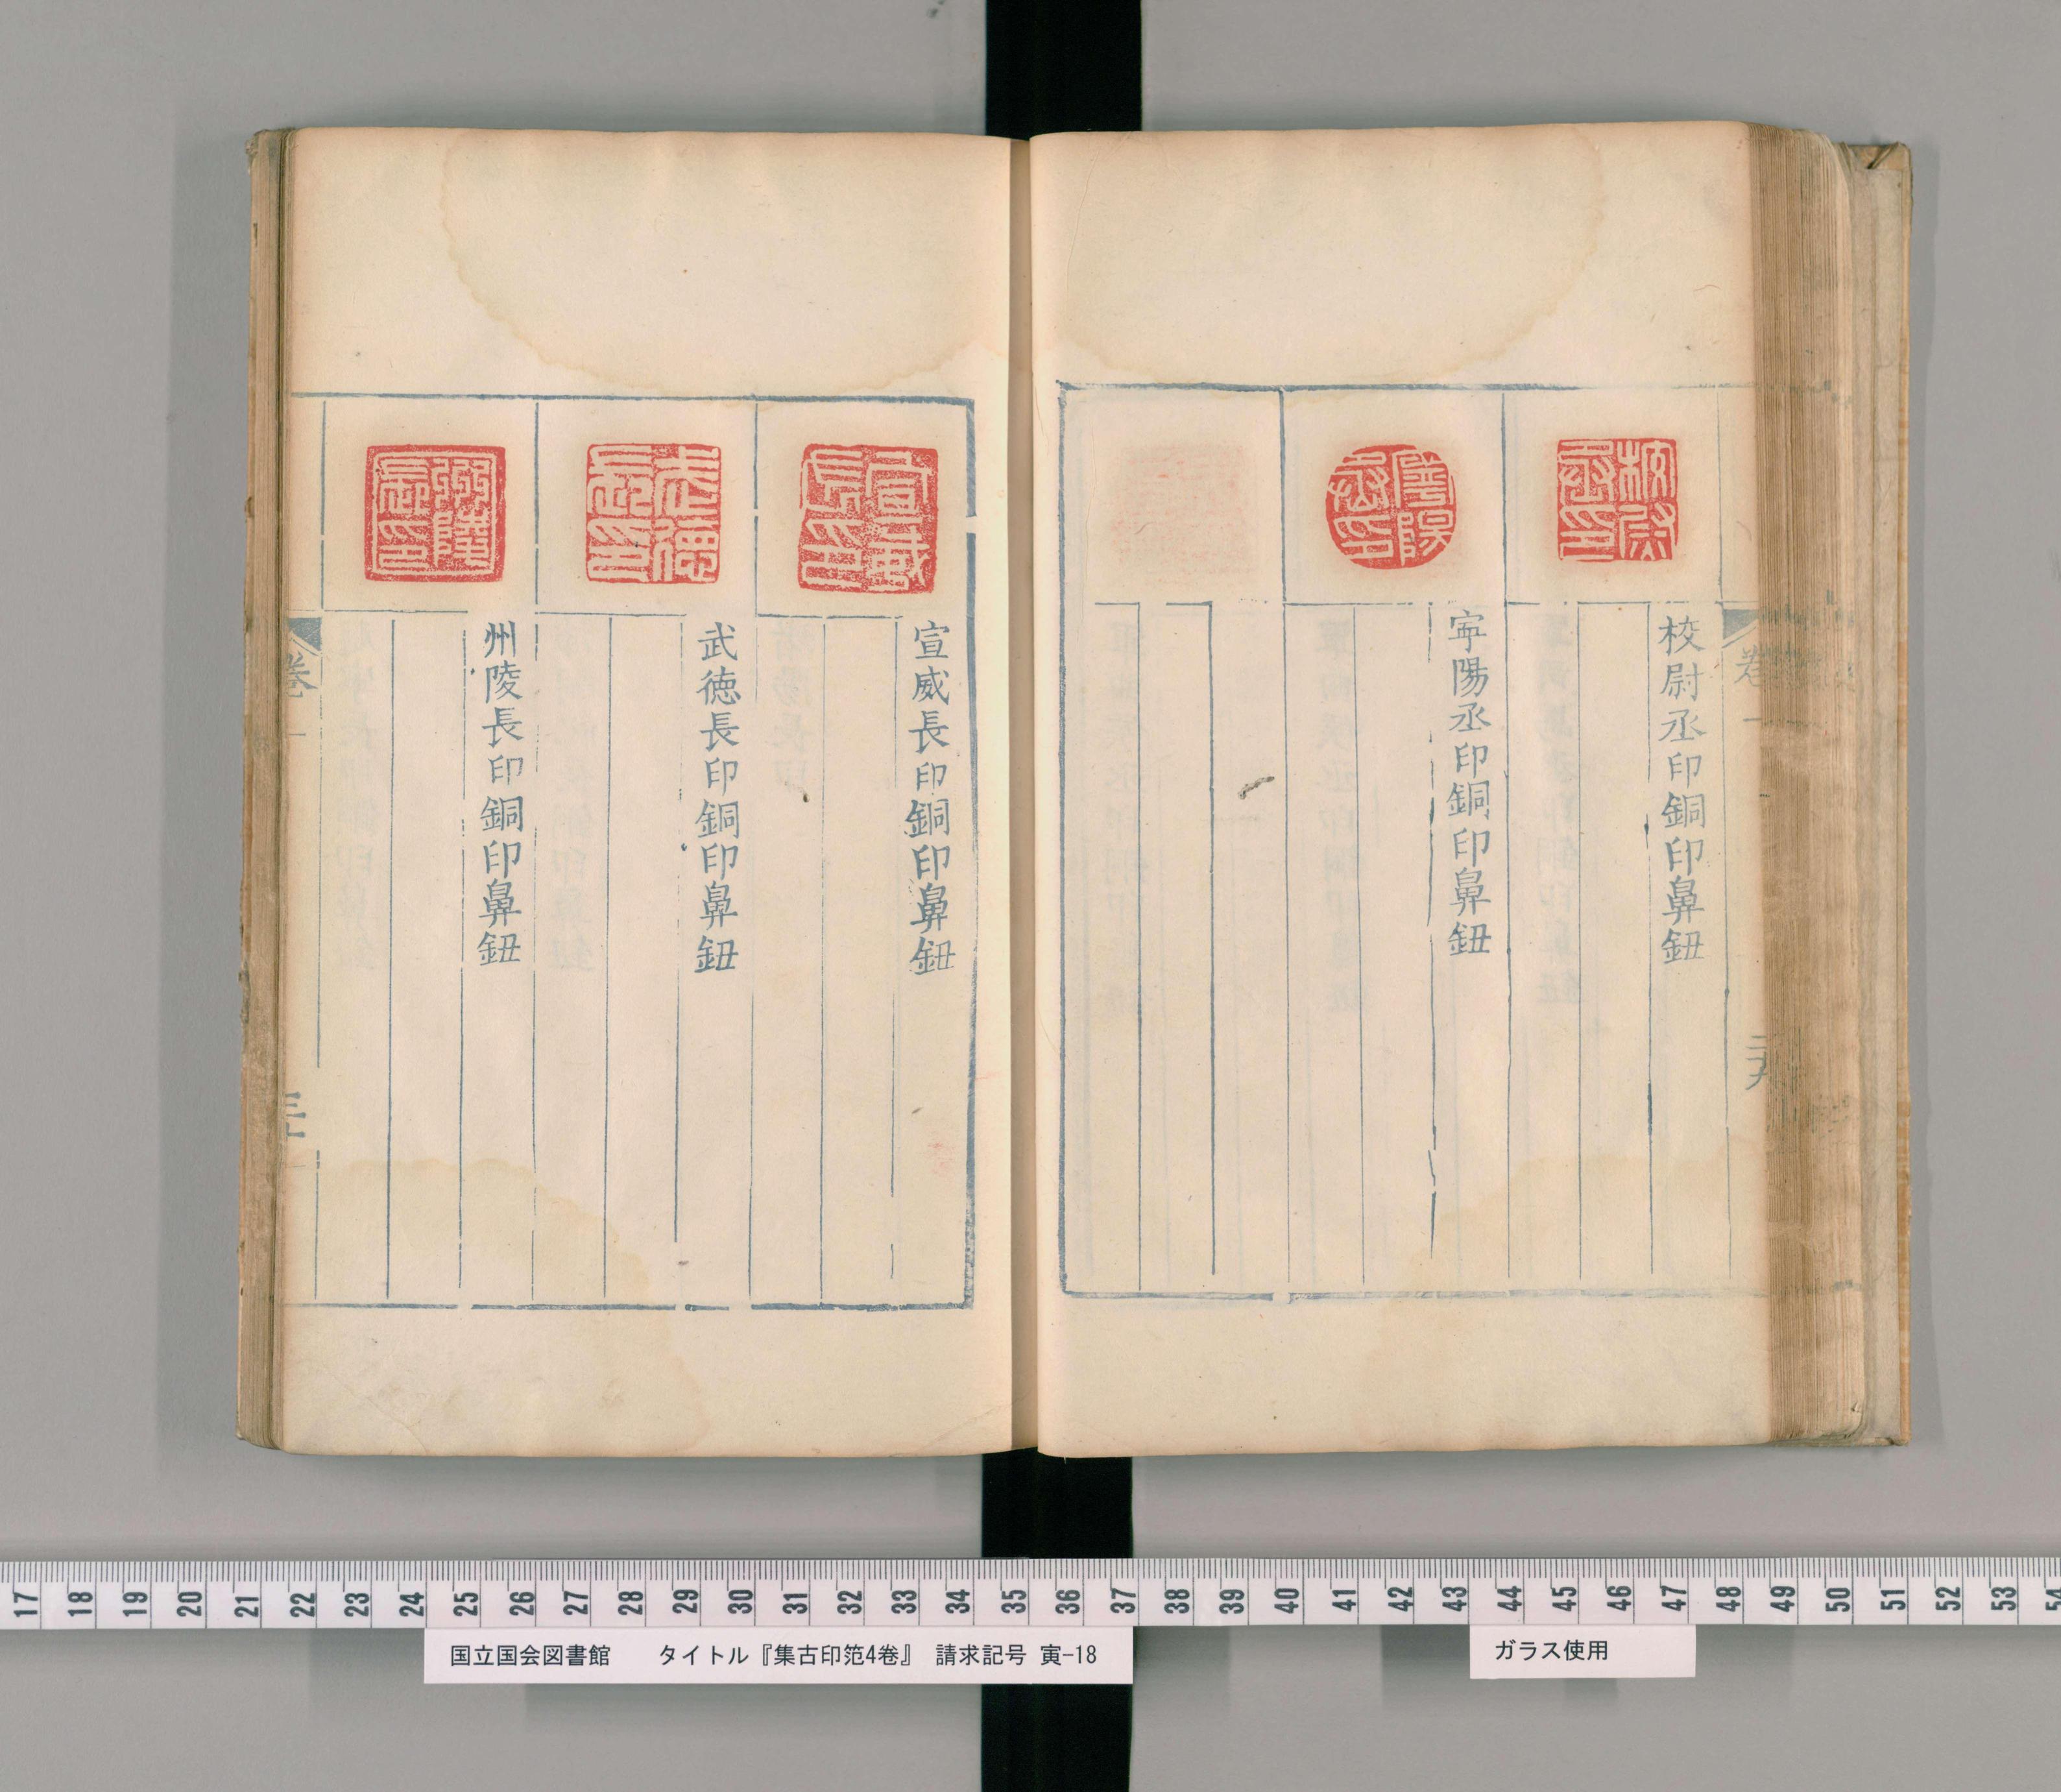 校尉丞印
校尉丞印銅印鼻鈕
寧陽丞印
寧陽丞印銅印鼻鈕
卷一
二十九
宣威長印
宣威長印銅印鼻鈕
武德長印
武徳長印銅印鼻鈕
州陵長印銅印鼻鈕
卷一
三十
17 18 19 20 21 22 23 24 25 26 27 28 29 30 31 32 33 34 35 36 37 38 39 40 41 42 43 44 45 46 47 48 49 50 51 52 53 54
国立国会図書館 タイトル『集古印笵4巻』 請求記号 寅-18
ガラス使用